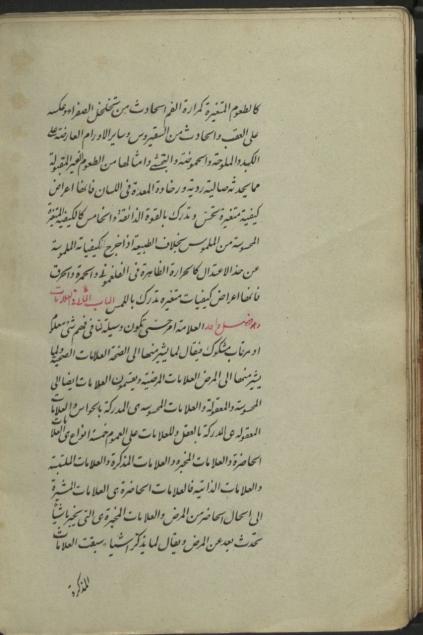 كالطعوم المتغيرة كمرارة الفم الحادث من تحلل الصفراء وعكسه
على العقب والحادث من السقيروس وساير الاورام العارضة على
الكبد والملوحة والحموضة وامثالها من الطعوم الغير المقبولة
مما يحدثه ردية ورخاوة المعدة فى اللسان فانها اعراض
كيفية متغيرة تحس وتدرك بالقوة الذائقة والخامس كالكيفية المتغيرة
المحسوسة من الملمس بخلاف الطبيعة اذا خرج الكيفيات الملموسة
عن حد الاعتدال كالحرارة الظاهرة فى الفلغمونى والحمرة والحرق
فانها اعراض كيفيات متغيرة تدرك باللمس الباب الثالث فى العلامات
وهو فصل واحد العلامة امر حسى تكون وسيلة لنا فى فهم شئ معلوم
او مرغاب مشكوك فيقال لما يشير منها الى الصحة العلامات الصحية ولما
يشير منها الى المرض العلامات المرضية ويقسمون العلامات ايضا الى
المحسوسة والمعقولة والعلامات المحسوسة هى المدركة بالحواس والعلامات
المعقولة هى المدركة بالعقل وللعلامات على العموم خمسة انواع هى العلامات
الحاضرة والعلامات المخبرة والعلامات المذكرة والعلامات الملتبسة
والعلامات الذاتية فالعلامات الحاضرة هى العلامات المشيرة
الى الحال الحاضر من المرض والعلامات المخبرة هى التى تخبر باشياء
تحدث بعد عن المرض ويقال لما يذكر اشياء سبقت العلامات
المذكرة